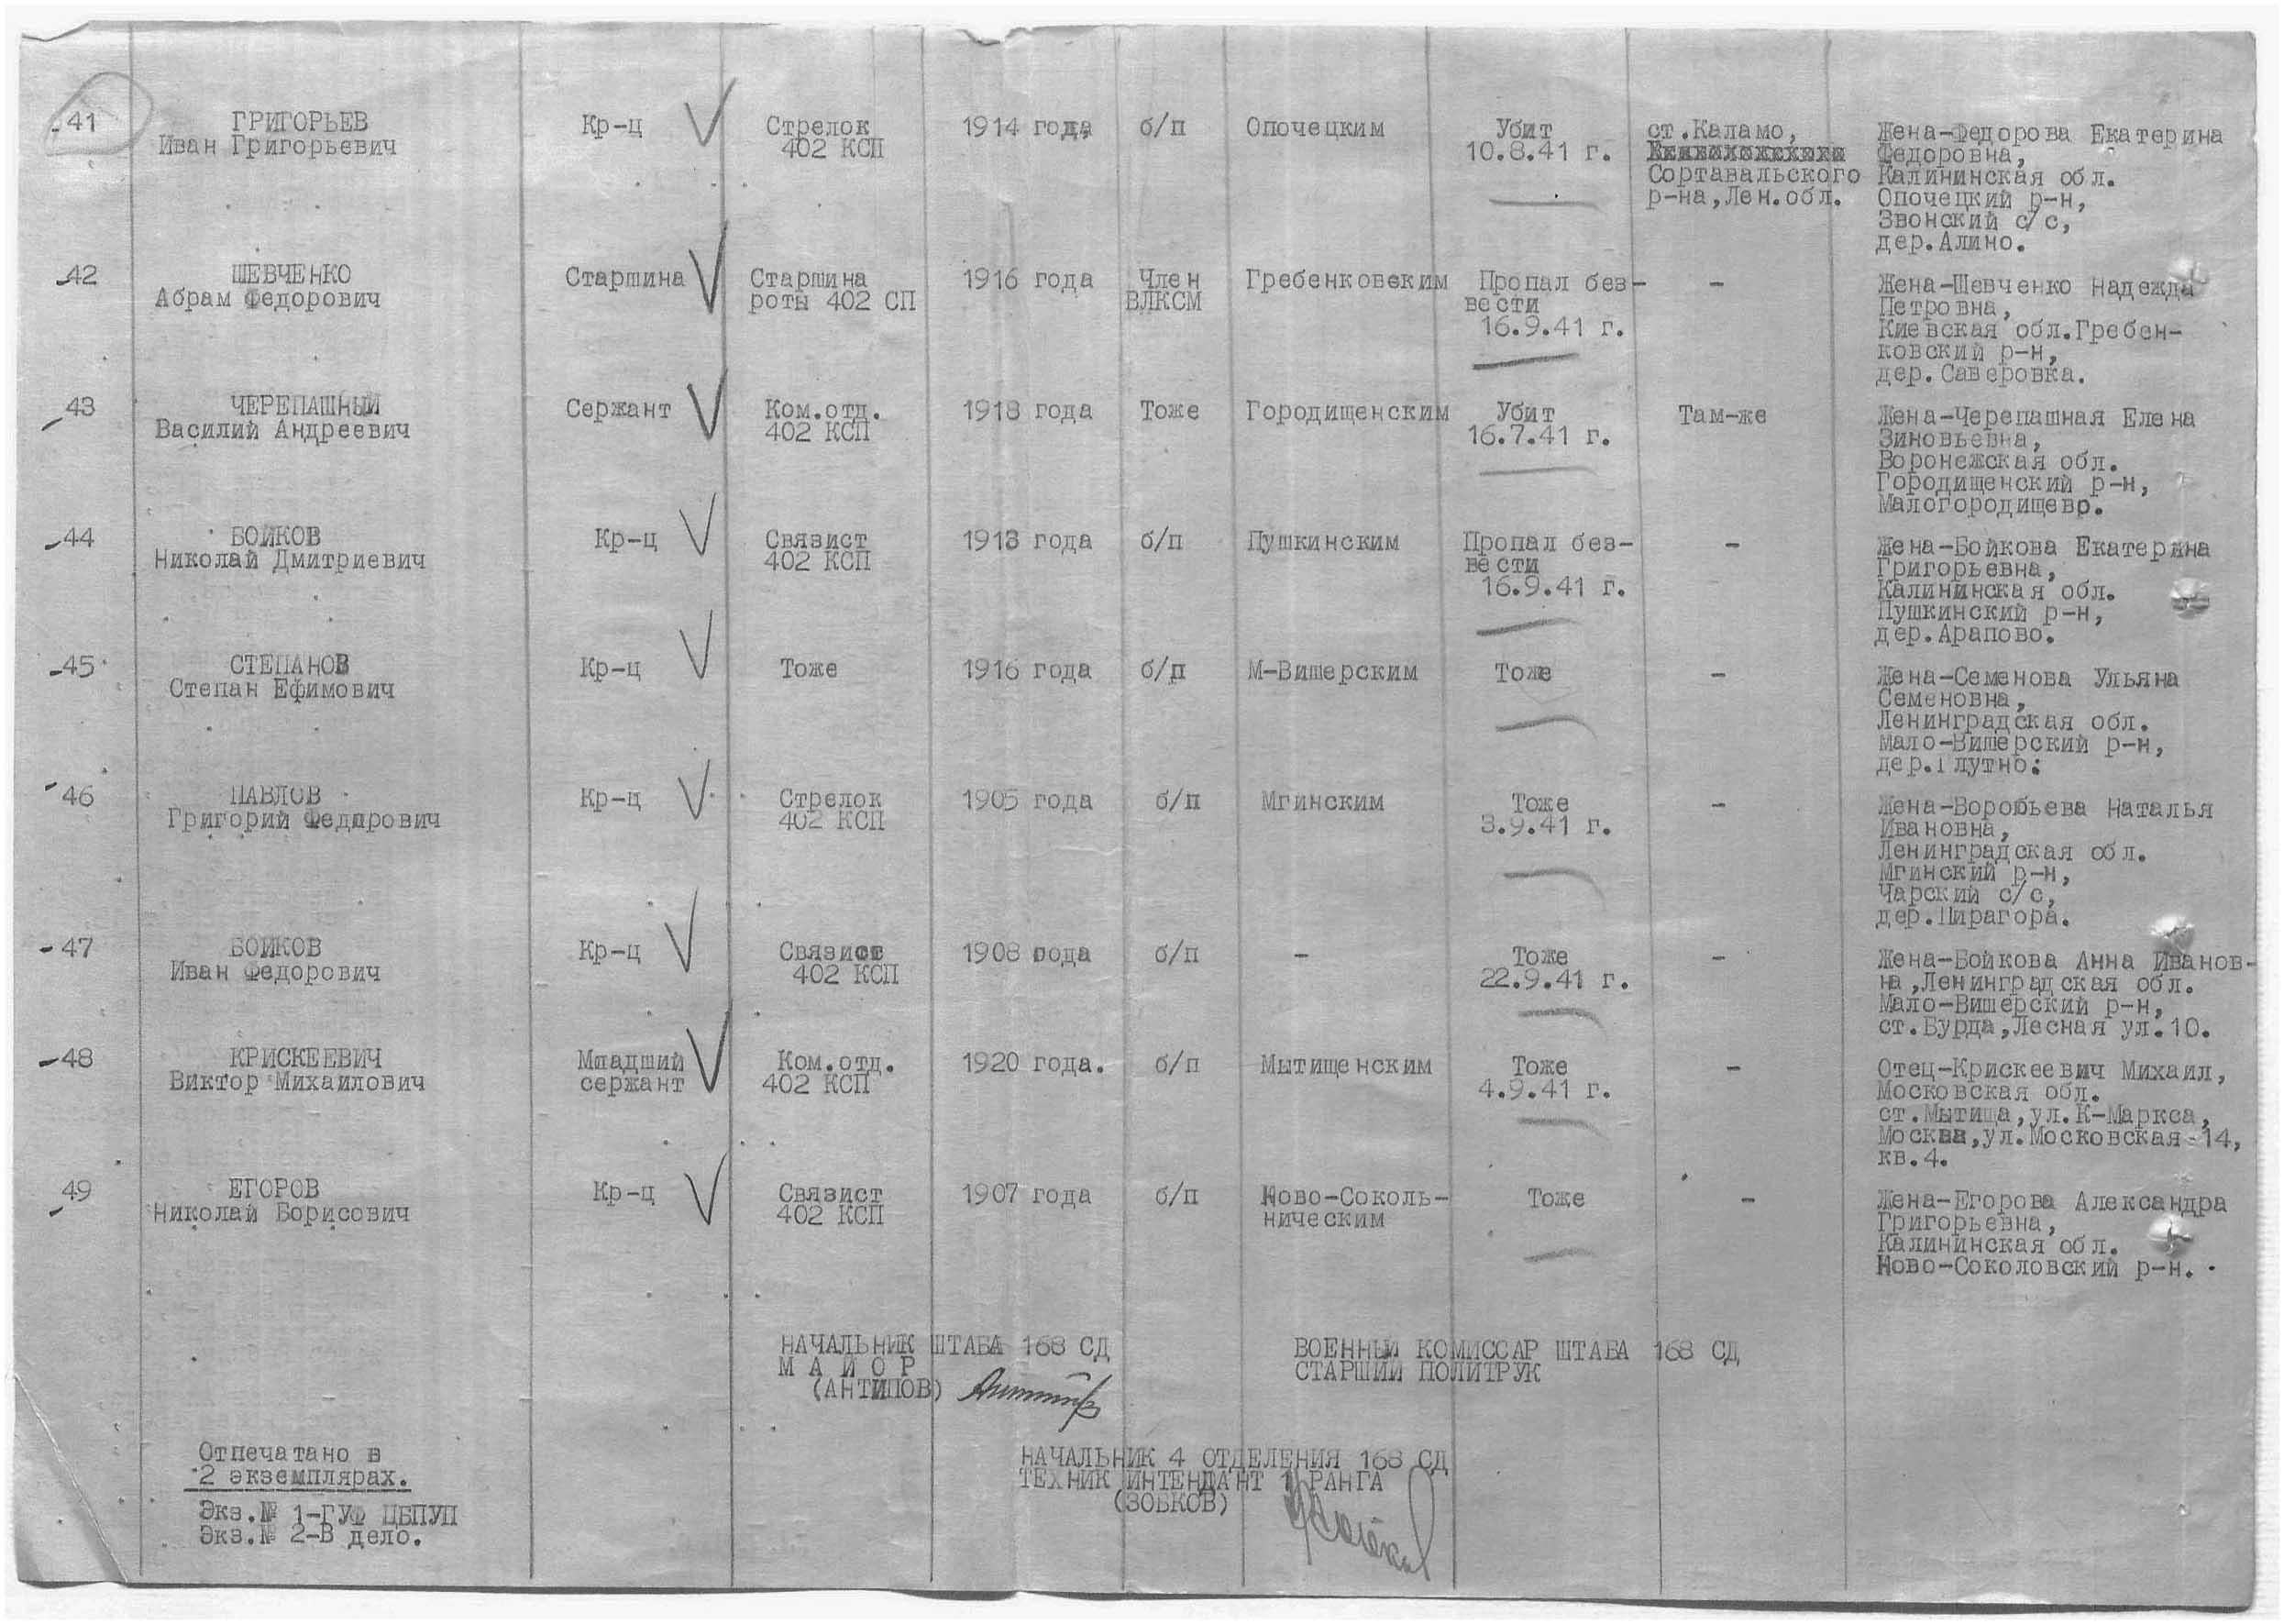 41
ГРИГОРЬЕВ
Иван Григорьевич
Кр-ц
Стрелок
402 КСП
1914 года
б/п
Опочецким
Убит
10.8.41 г.
ст.Каламо,
Сортавальского
р-на,Лен.обл.
Жена-Федорова Екатерина
Федоровна,
Калининская обл.
Опочецкий р-н,
Звонский с/с,
дер.Алино.
42
ШЕВЧЕНКО
Абрам Федорович
Старшина
Старшина
роты 402 СП
1916 года
Член
ВЛКСМ
Гребенковским
Пропал без-
вести
16.9.41 г.
-
Жена-Шевченко Надежда
Петровна,
Киевская обл.Гребен-
ковский р-н,
дер.Саверовка.
43
ЧЕРЕПАШНЫЙ
Василий Андреевич
Сержант
Ком.отд.
402 КСП
1918 года
Тоже
Городищенским
Убит
16.7.41 г.
Там-же
Жена-Черепашная Елена
Зиновьевна,
Воронежская обл.
Городищенский р-н,
Малогородищевр.
44
БОЙКОВ
Николай Дмитриевич
Кр-ц
Связист
402 КСП
1913 года
б/п
Пушкинским
Пропал без-
вести
16.9.41 г.
-
Жена-Бойкова Екатерина
Григорьевна,
Калининская обл.
Пушкинский р-н,
дер.Арапово.
45
СТЕПАНОВ
Степан Ефимович
Кр-ц
Тоже
1916 года
б/п
М-Вишерским
Тоже
-
Жена-Семенова Ульяна
Семеновна,
Ленинградская обл.
Мало-Вишерский р-н,
дер.Глутно.
46
ПАВЛОВ
Григорий Федорович
Кр-ц
Стрелок
402 КСП
1905 года
б/п
Мгинским
Тоже
3.9.41 г.
-
Жена-Воробьева Наталья
Ивановна,
Ленинградская обл.
Мгинский р-н,
Чарский с/с,
дер.Пирагора.
47
БОЙКОВ
Иван Федорович
Кр-ц
Связист
402 КСП
1908 года
б/п
-
Тоже
22.9.41 г.
-
Жена-Бойкова Анна Иванов-
на,Ленинградская обл.
Мало-Вишерский р-н,
ст.Бурда,Лесная ул.10.
48
КРИСКЕЕВИЧ
Виктор Михайлович
Младший
сержант
Ком.отд.
402 КСП
1920 года.
б/п
Мытищенским
Тоже
4.9.41 г.
-
Отец-Крискеевич Михаил,
Московская обл.
ст.Мытища,ул.К-Маркса,
Москва,ул.Московская-14,
кв.4.
49
ЕГОРОВ
Николай Борисович
Кр-ц
Связист
402 КСП
1907 года
б/п
Ново-Соколь-
ническим
Тоже
-
Жена-Егорова Александра
Григорьевна,
Калининская обл.
Ново-Соколовский р-н.
НАЧАЛЬНИК ШТАБА 168 СД
М А Й О Р
(АНТИПОВ)
ВОЕННЫЙ КОМИССАР ШТАБА 168 СД
СТАРШИЙ ПОЛИТРУК
НАЧАЛЬНИК 4 ОТДЕЛЕНИЯ 168 СД
ТЕХНИК ИНТЕНДАНТ 1 РАНГА
(ЗОБКОВ)
Отпечатано в
2 экземплярах.
Экз.№ 1-ГУФ ЦБПУП
Экз.№ 2-В дело.